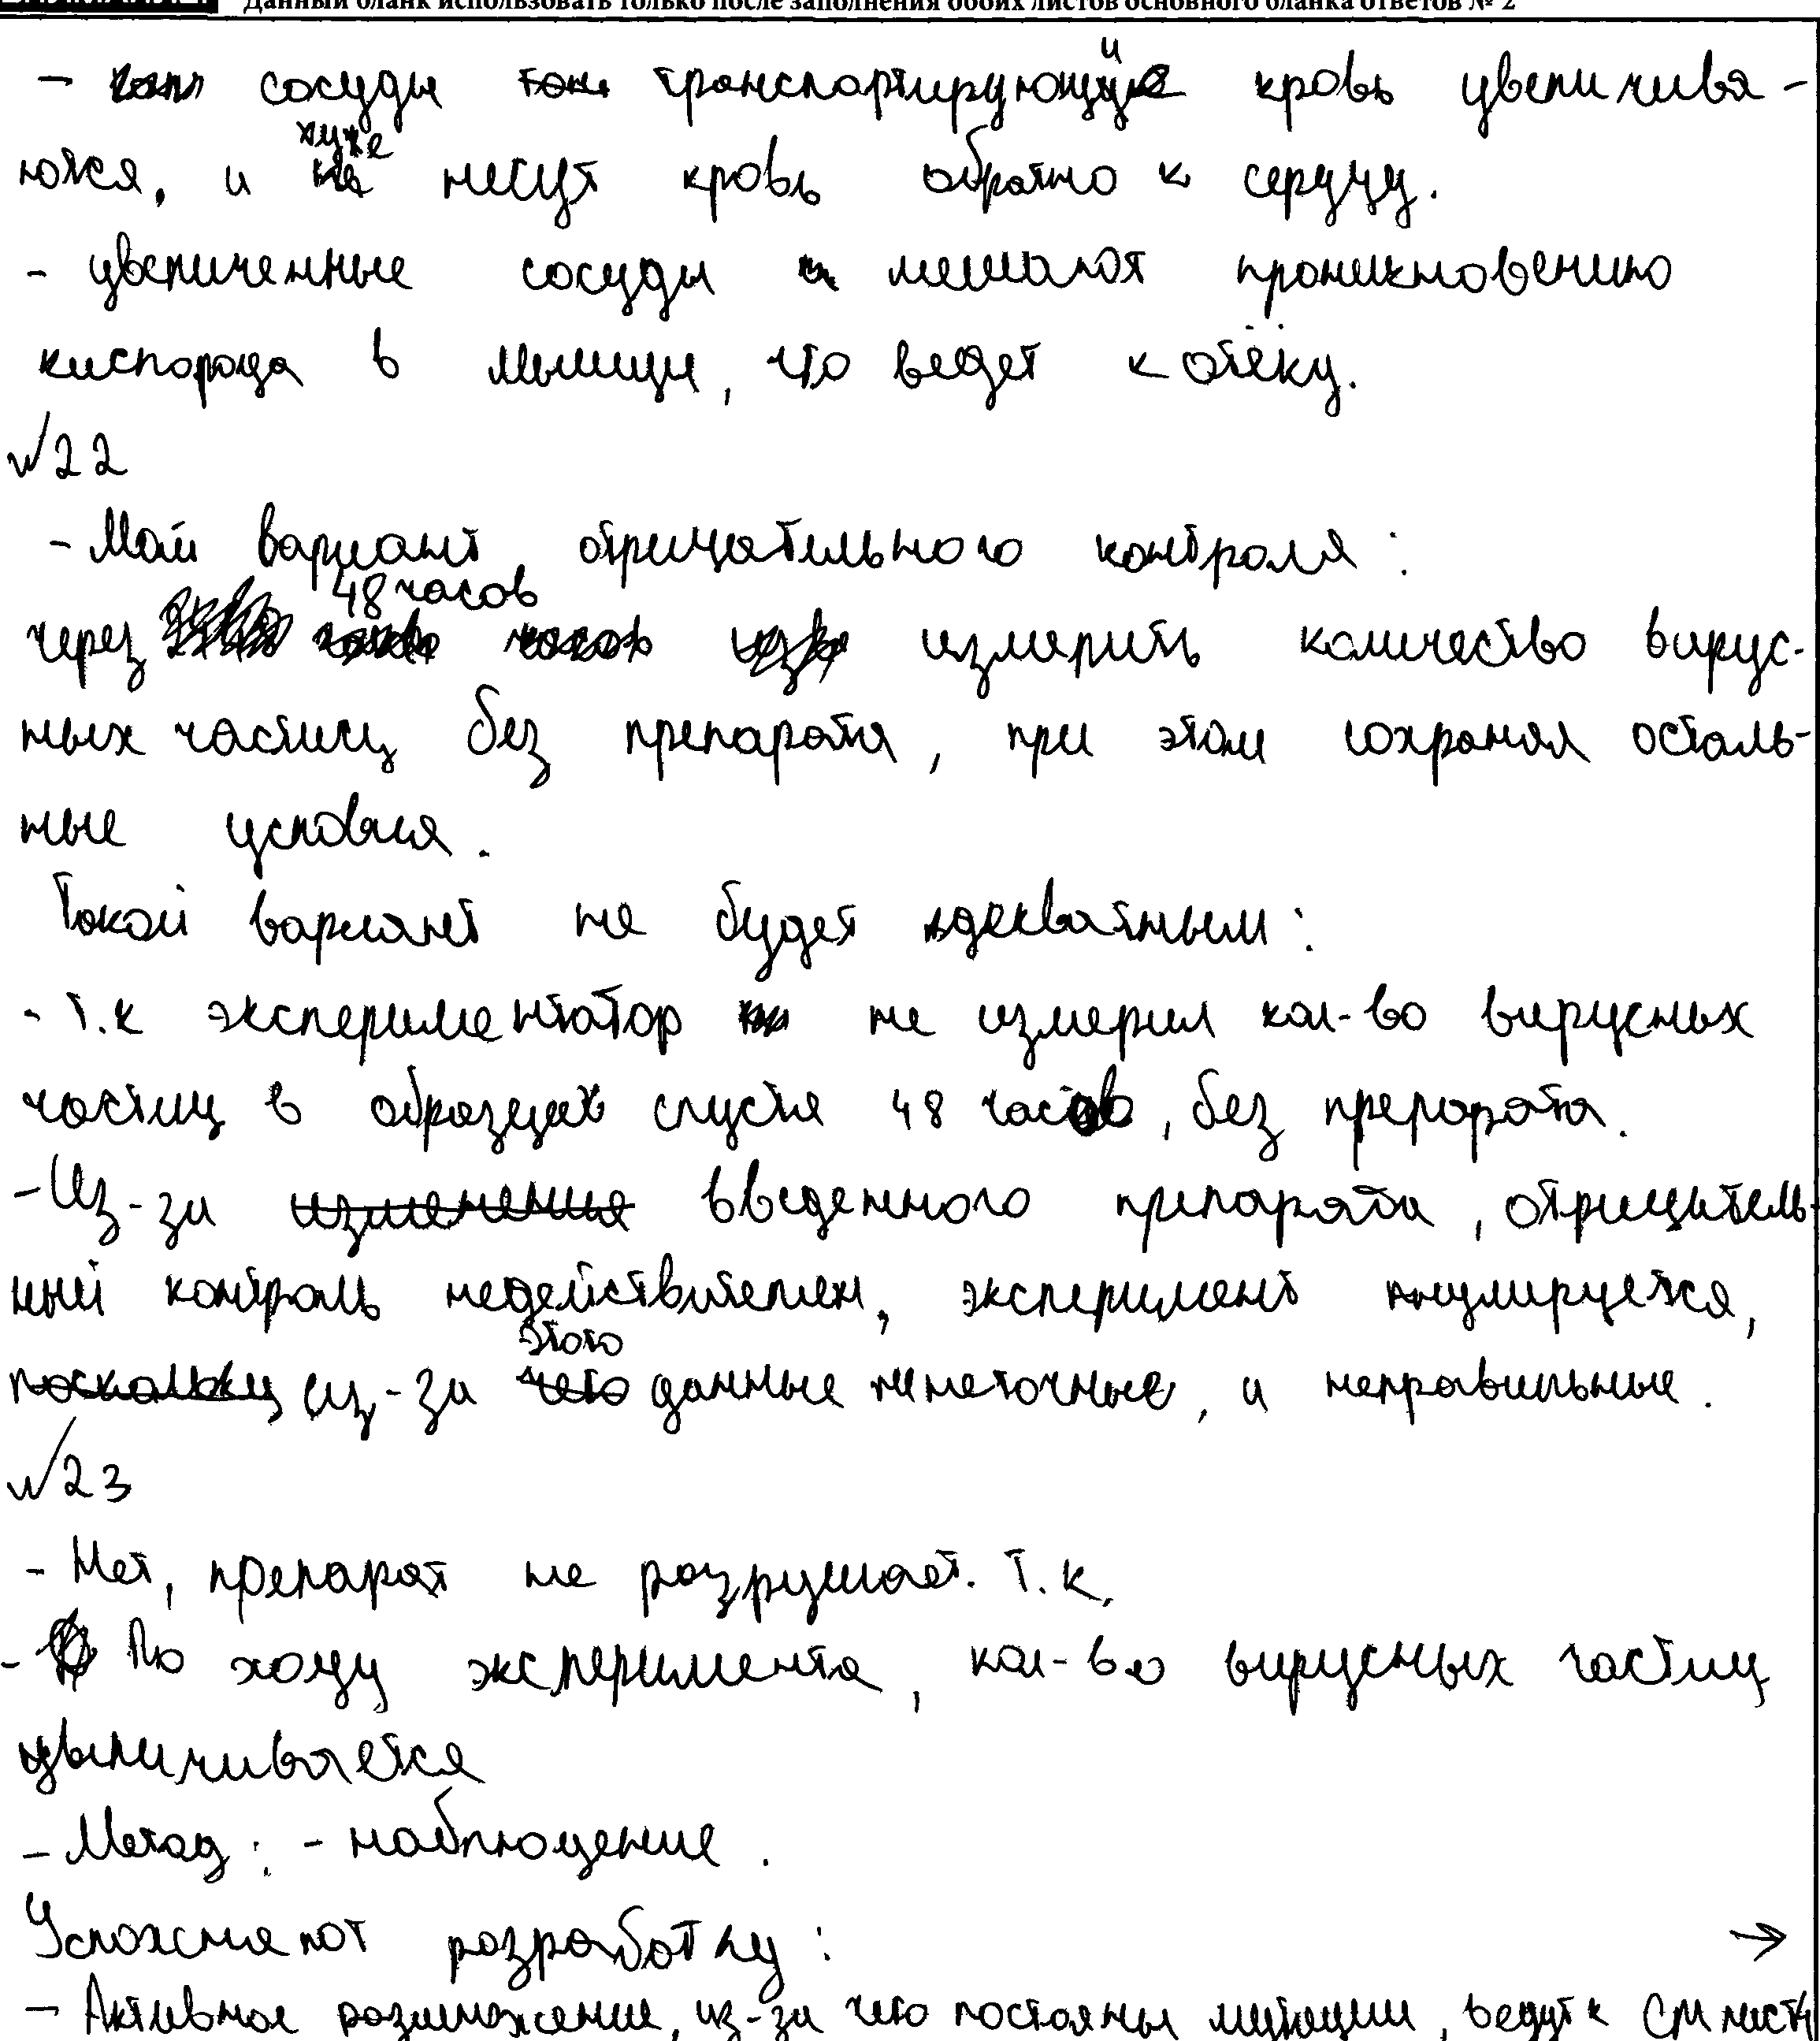 Данный бланк использовать только после заполнения обоих листов основного бланка ответов № 2
- сосуды транспортирующий кровь увеличива-
ются, и хуже несут кровь обратно к сердцу.
- увеличенные сосуды мешают проникновению
кислорода в мышцы, что ведет к отёку.
√22
- Мой вариант отрицательного контроля:
через 48 часов измерить количество вирус-
ных частиц без препарата, при этом сохраняя осталь-
ные условия.
Такой вариант не будет адекватным:
- т.к экспериментатор не измерил кол-во вирусных
частиц в образцах спустя 48 часов, без препората.
- Из-за введенного препарата, отрицатель-
ный контроль недействителен, эксперимент анулируется,
из-за этого данные неточные, и неправильные.
√23
- Нет, препарат не разрушает. Т.к.
- По ходу эксперимента, кол-во вирусных частиц
увеличивается
- Метод: - наблюдение.
Усложняют разработку: →
- Активное размножение, из-за чего постояны мутации, ведут к См лист4